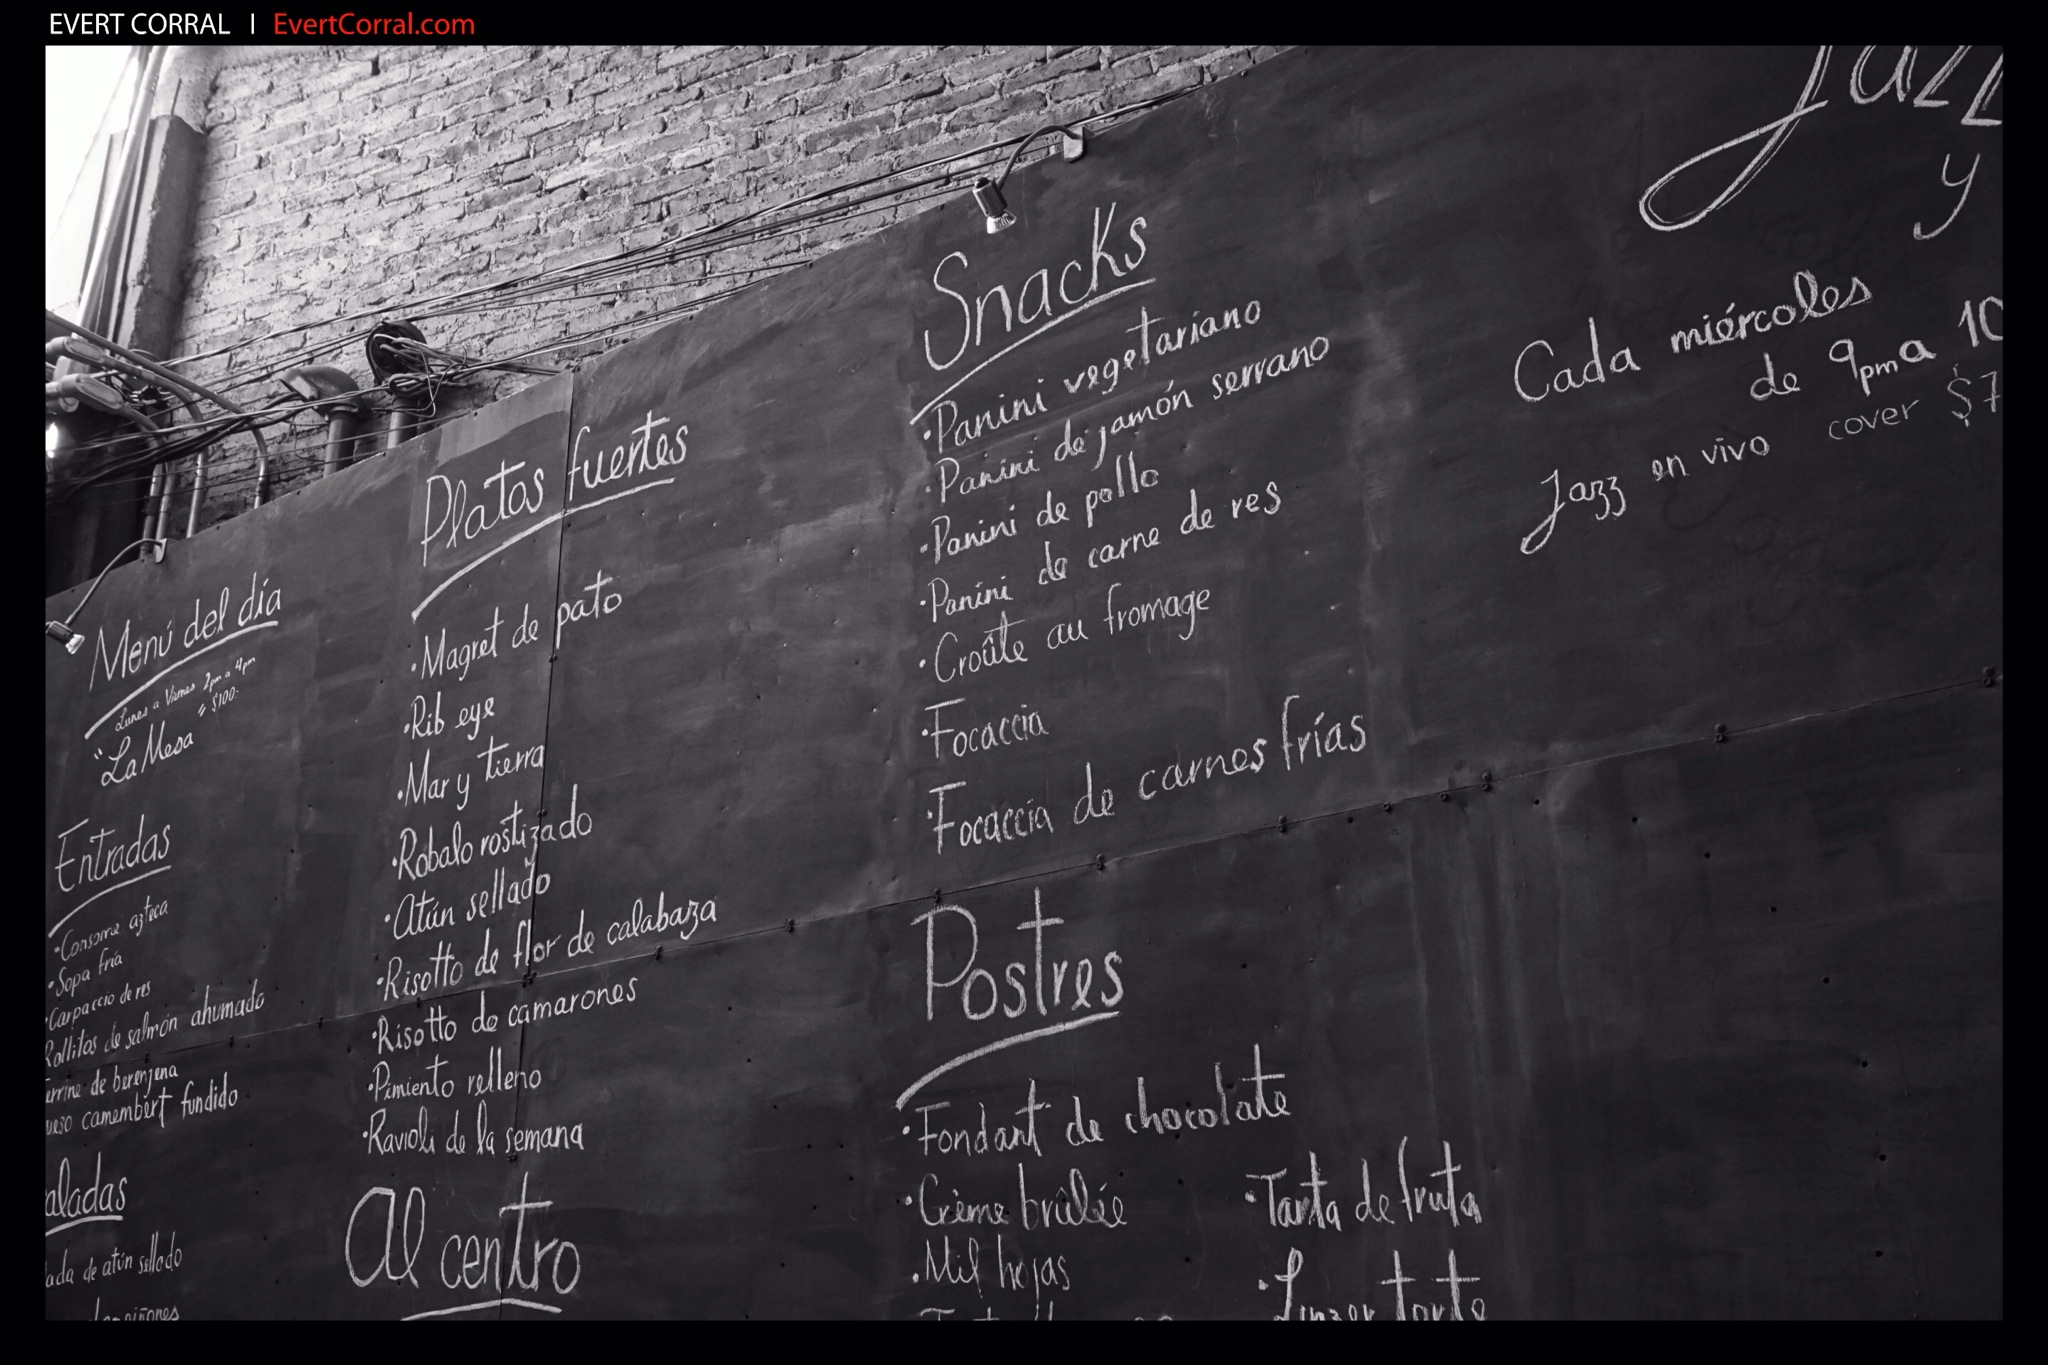 EVERT CORRAL | EvertCorral.com
Menú del día
Lunes a Viernes 2pm a 4pm
"La Mesa" $100.
Entradas
·Consome azteca
·Sopa fría
·Carpaccio de res
Rollitos de salmón ahumado
de berenjena
camembert fundido
de atún sellado
Platos fuertes
·Magret de pato
·Rib eye
·Mar y tierra
·Robalo rostizado
·Atún sellado
·Risotto de flor de calabaza
·Risotto de camarones
·Pimiento relleno
·Ravioli de la semana
Al centro
Snacks
·Panini vegetariano
·Panini de jamón serrano
·Panini de pollo
·Panini de carne de res
·Croûte au fromage
·Focaccia
·Focaccia de carnes frías
Postres
·Fondant de chocolate
·Crème brûlée
·Mil hojas
·Tarta de fruta
·Linzer torte
Jazz
y
Cada miércoles
de 9pm a 10
cover $7
Jazz en vivo